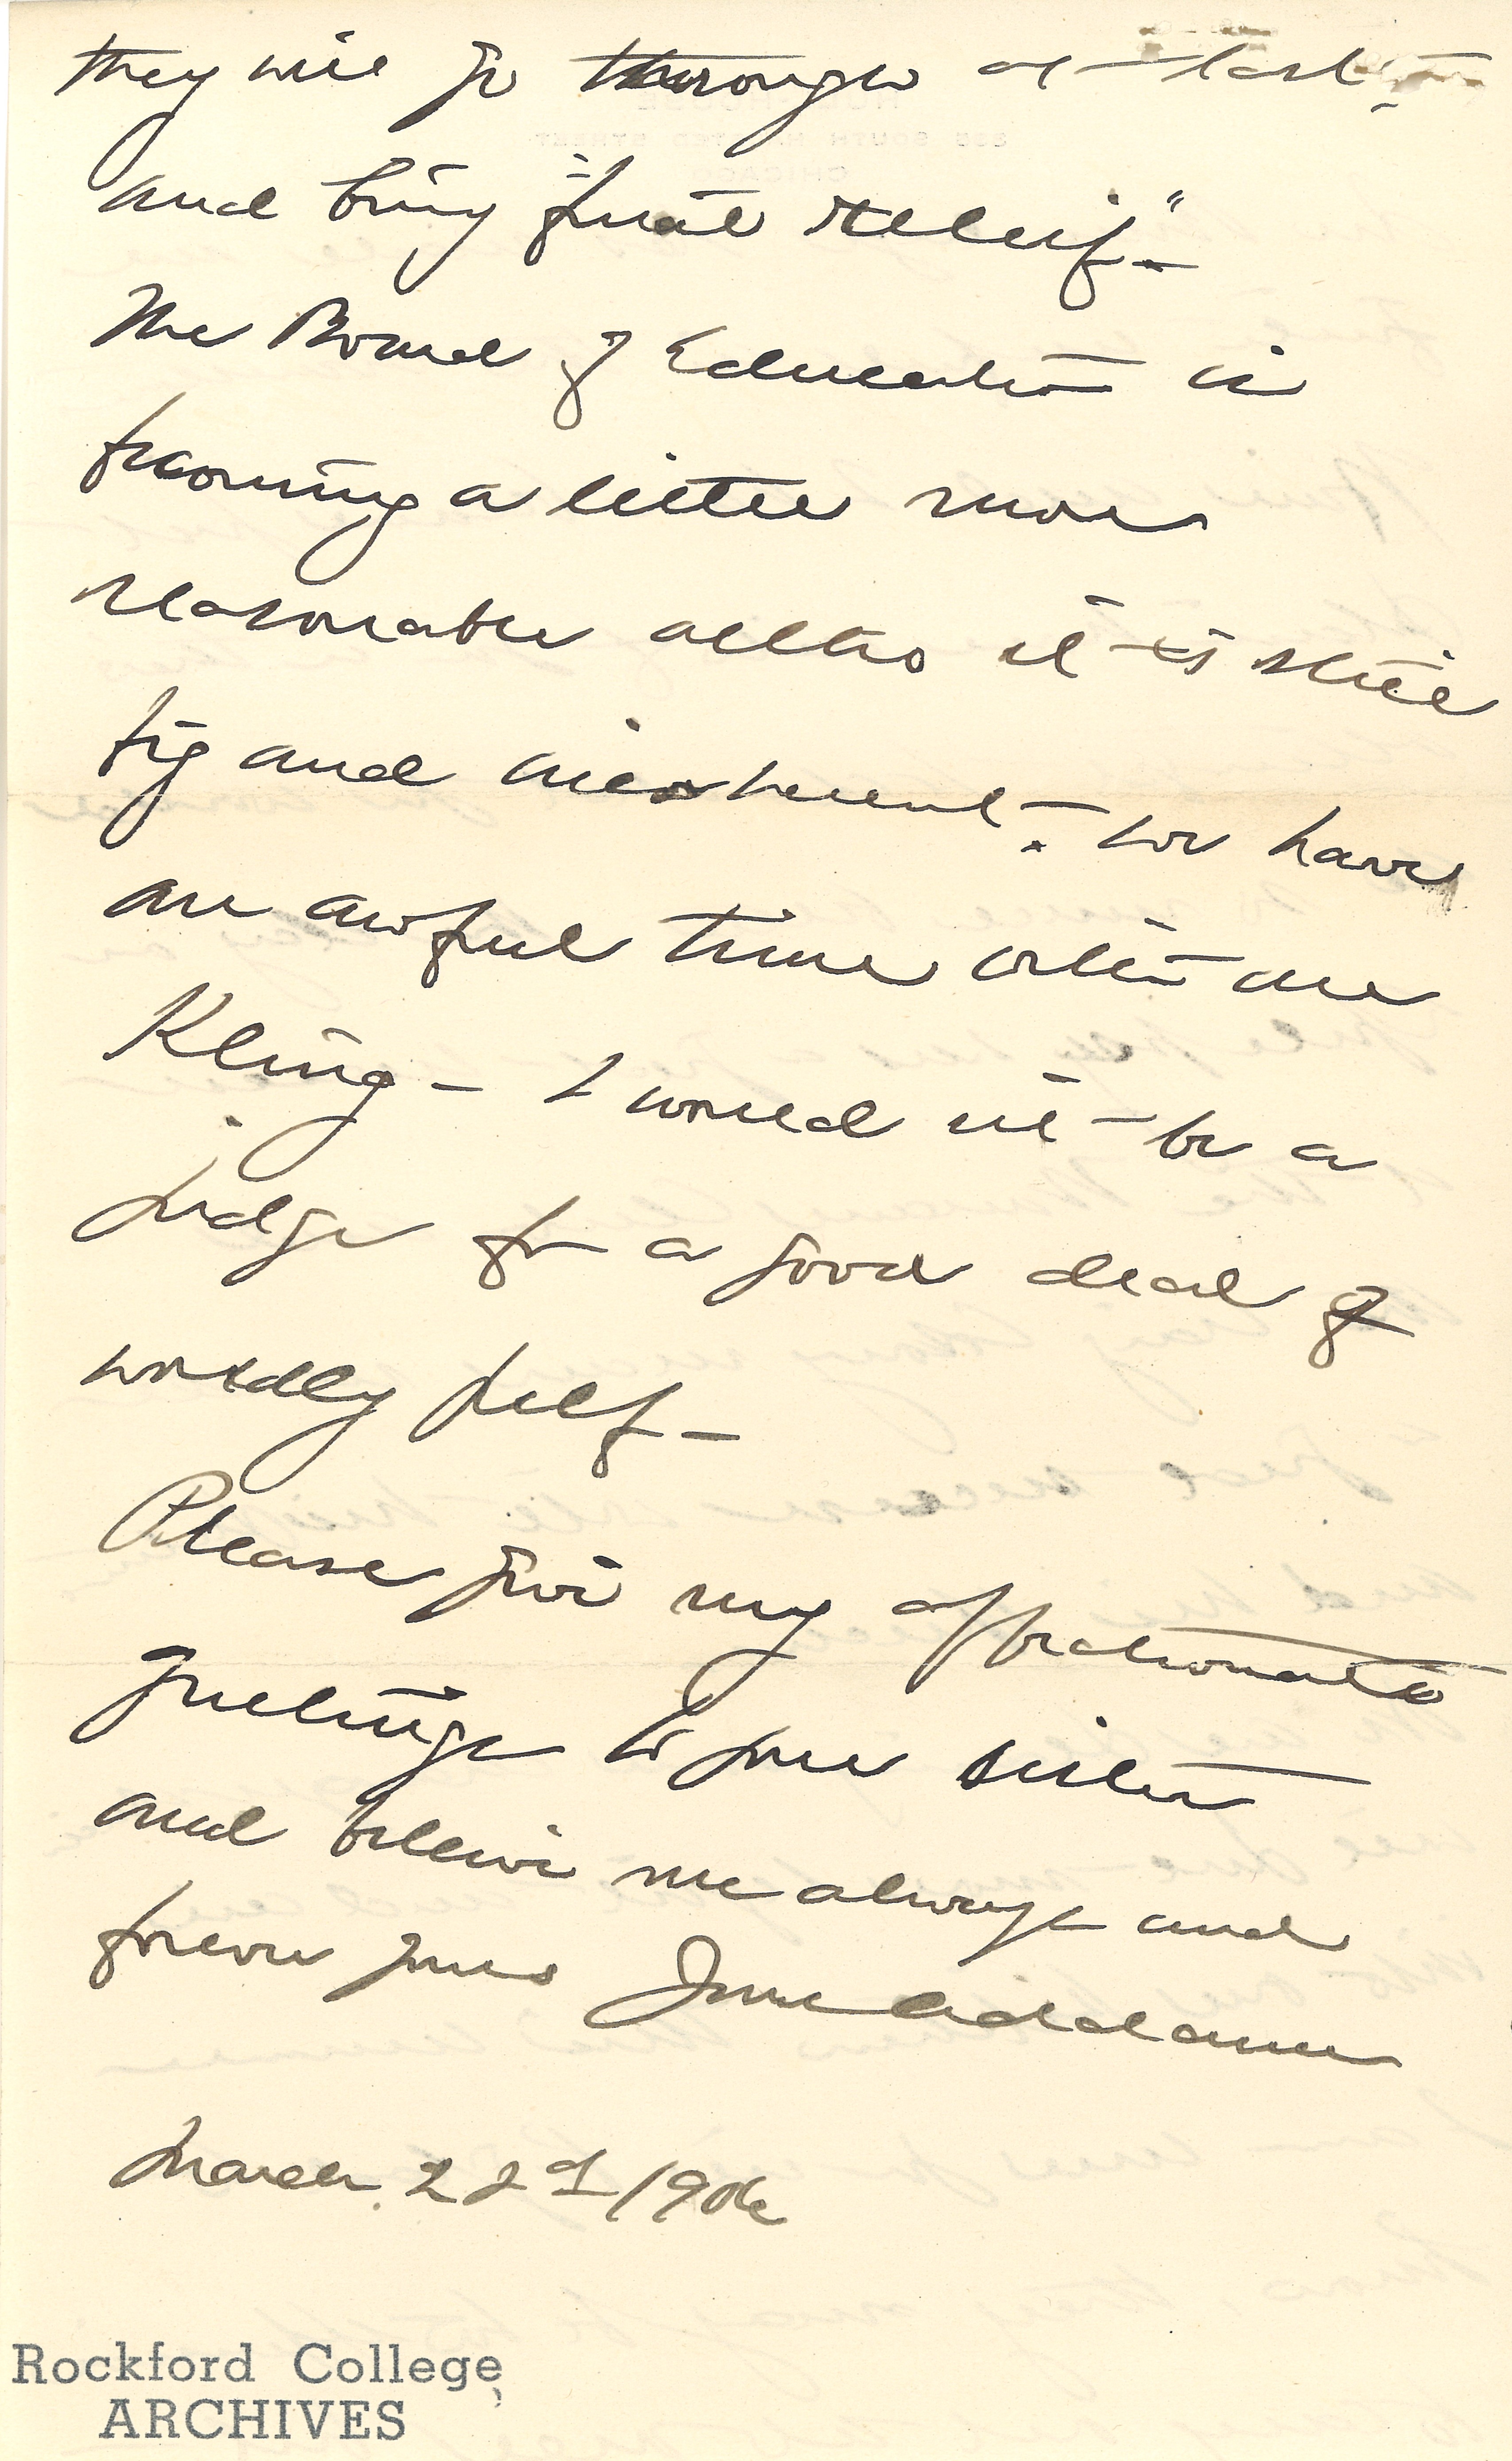 they will go through at last -
and bring "final relief" -
The Board of Education is
becoming a little more
reasonable altho it is still
big and - we have
an awful time with
Kling - I would not be a
judge for a good deal of
worldly pelf -
Please give my affectionate
greetings to your sister
and believe me always and
forever yours Jane Addams
March 22d 1906
Rockford College
ARCHIVES